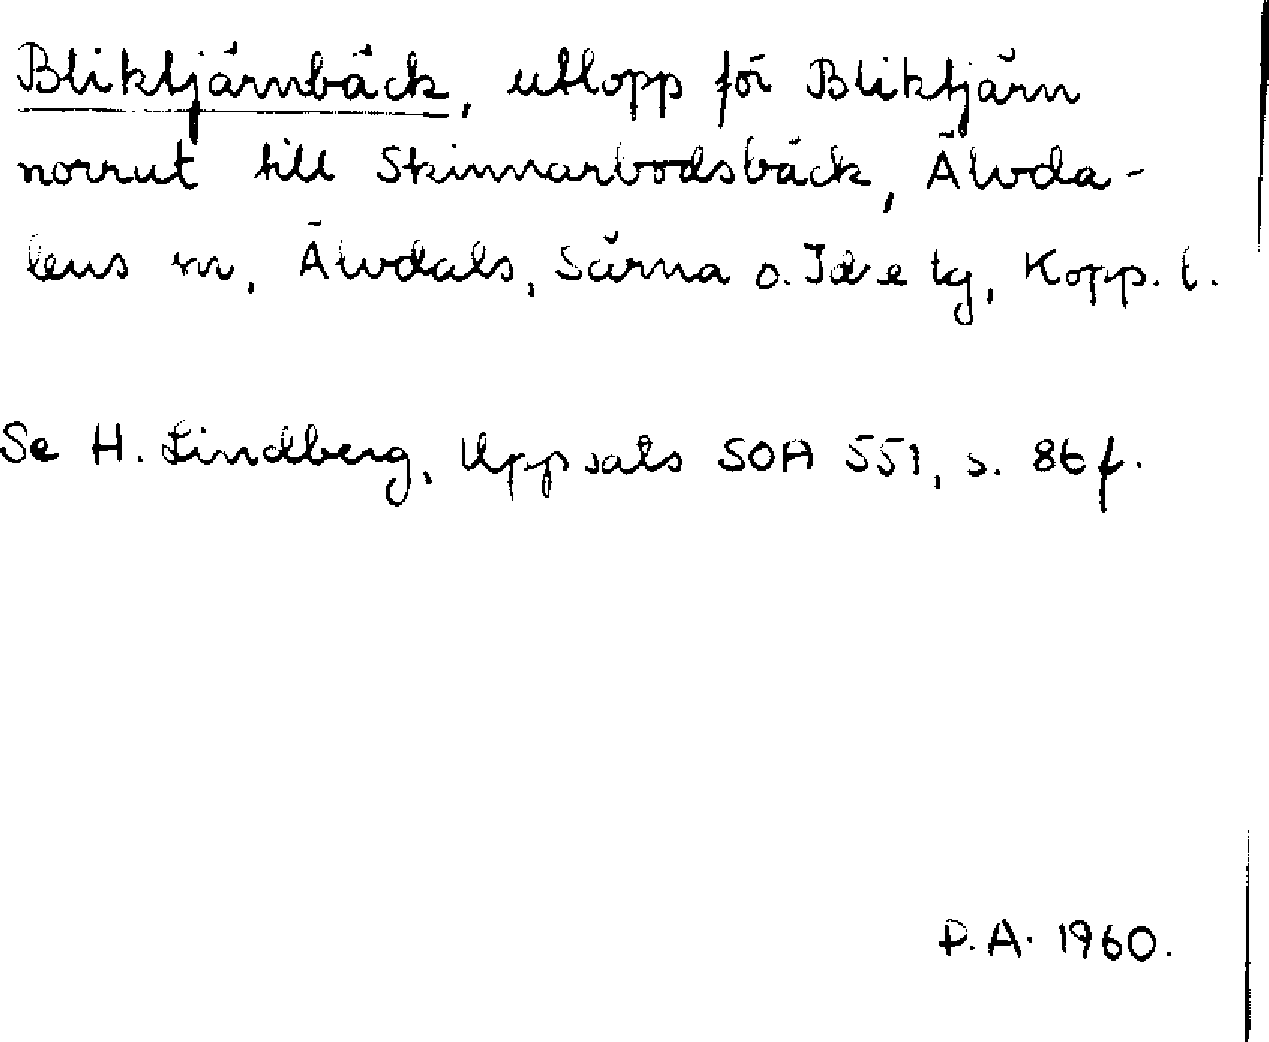 Bliktjärnbäck, utlopp för Bliktjärn
norrut till Skinnarbodsbäck, Älvda-
lens sn, Älvdals, Särna o. Idre tg, Kopp. l.
Se H. Lindberg, Uppsals SOA 551, s. 86 f.
P.A. 1960.